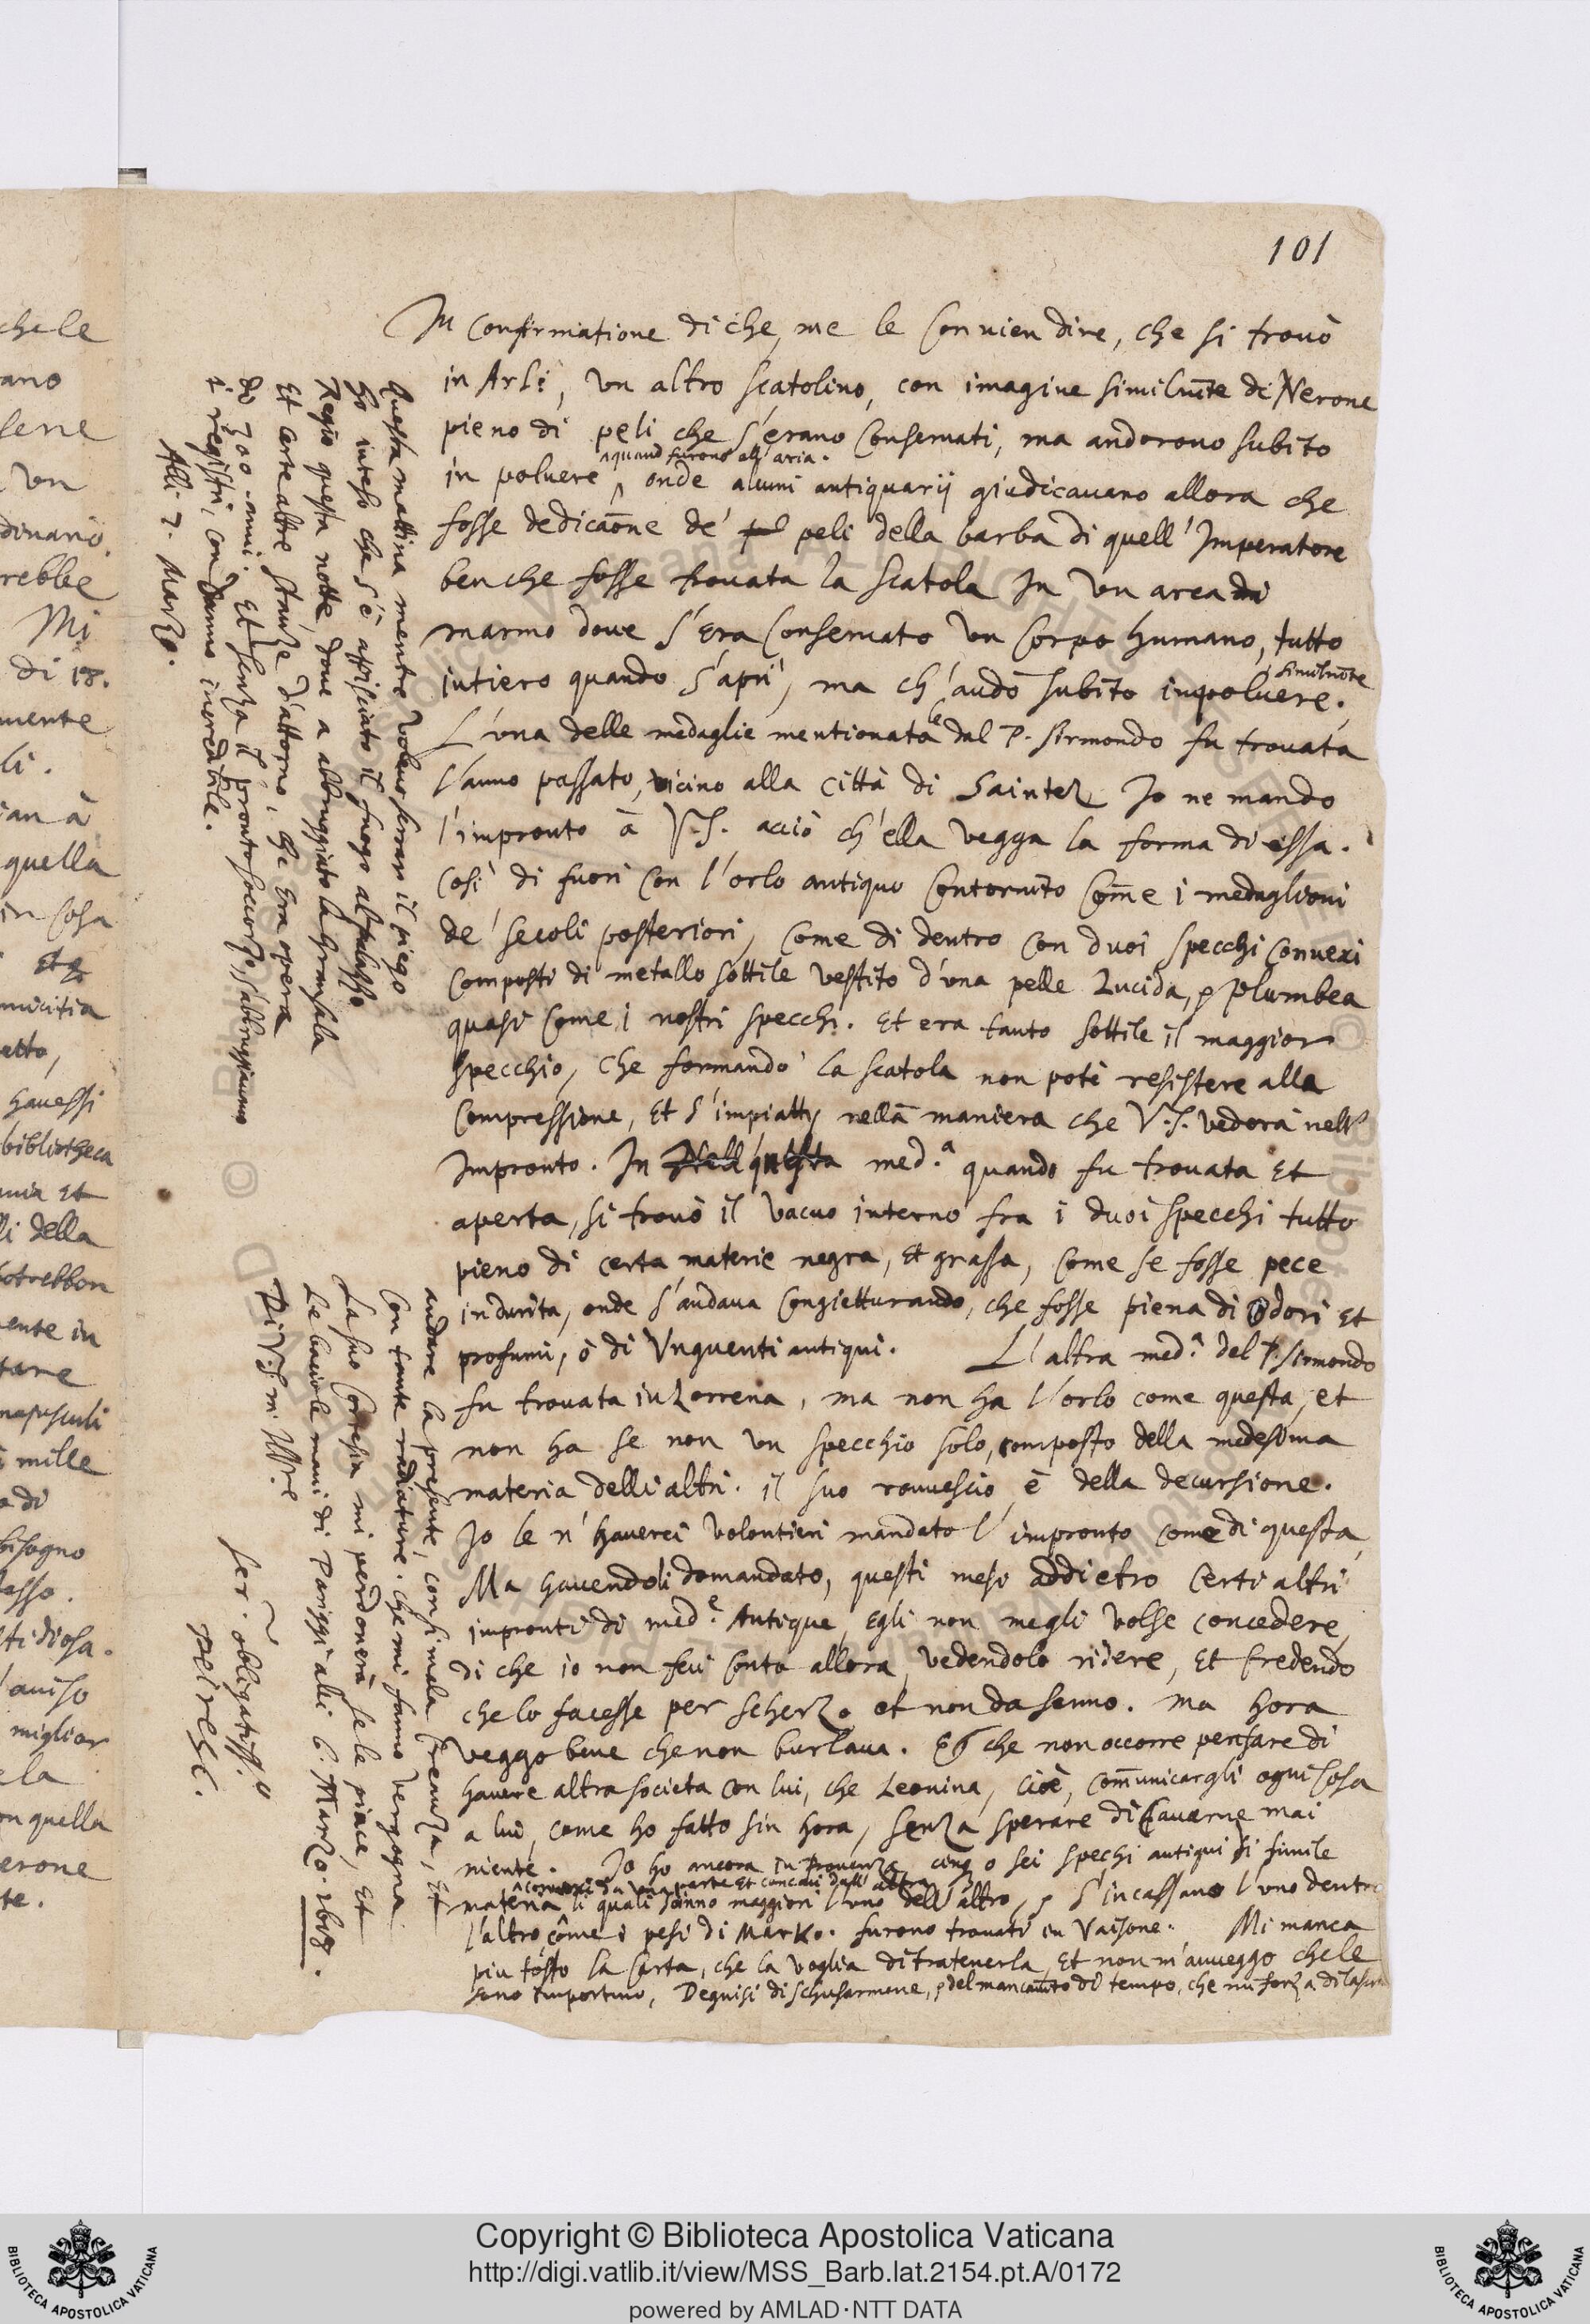 101
In confirmatione di che, me le convien dire, che si trovò
in Arli, un altro scatolino, con imagine similmte di Nerone
pieno di peli che s'erano conservati, ma andorono subito
quand furono all'aria.
in polvere, onde alcuni antiquarij giudicavano allora che
fosse dedicaōne de' peli della barba di quell' Imperatore
benche fosse trovata la scatola in un arca di
marmo dove s'era conservato un corpo humano, tutto
intiero quando s'aprì, ma ch'andò subito similmēte in polvere.
L'una delle medaglie mentionate dal P. Sirmondo fu trovata
l'anno passato, vicino alla città di Saintes Io ne mando
l'impronto à V.S. acciò ch'ella vegga la forma di essa.
Così di fuori con l'orlo antiquo contornito come i medaglioni
de' secoli posteriori, come di dentro con duoi specchi convexi
composti di metallo sottile vestito d'una pelle lucida, e plumbea
quasi come i nostri specchi. Et era tanto sottile il maggior
specchio, che formando la scatola non potè resistere alla
compressione, et s'impiattì nella maniera che V.S. vedera nell'
impronto. In questa med.a quando fu trovata et
aperta, si trovò il vacuo interno fra i duoi specchi tutto
pieno di certa materie negra, et grassa, come se fosse pece
indurita, onde s'andava congietturando, che fosse piena di odori et
profumi, ò di Unguenti antiqui. L'altra med.a del P. Sirmondo
fu trovata in Lorrena, ma non ha l'orlo come questa, et
non ha se non un specchio solo, composto della medesima
materia delli altri. il suo rouvescio è della decursione.
Io le n'haverei volontieri mandato l'impronto come di questa,
Ma havendoli domandato, questi mesi addietro certi altri
impronti di med.e Antique, egli non me gli volse concedere,
di che io non feci conto allora, vedendolo ridere, et credendo
che lo facesse per scherzo et non da senno. ma hora
veggo bene che non burlava. Et che non occorre pensare di
havere altra societa con lui, che Leonina, cioè, communicargli ogni cosa
a lui, come ho fatto sin hora, senza sperare di cavarne mai
niente. Io ho ancora in Provenza cinq o sei spechi antiqui di simile
convexi da una parte et concavi dall' altra
materia li quali sanno maggiori l'uno dell'altro, e s'incassano l'uno dentro
l'altro come i pesi di Marko. furono trovati in Vaisone. Mi manca
piu tosto la carta, che la voglia di tratenerla, Et non m'avveggo che le
sono importuno, Degnisi di schusarmene, e del mancamto di tempo, che mi forza di lasciar
andare la presente, con sì mala creanza, Et
con tante radiature. che mi fanno vergogna
La sua cortesia mi perdonerà se le piace, Et
le bacio le mani di Pariggi alli 6. Marzo. 1618.
Di V.S. m. Ill.re
ser. obligatiss.o
Peiresc.
Questa mattina mentre volevo serrar il piego
ho inteso che s'è appicciato il fuogo al palazzo
Regio questa notte, dove a abbruggiato la gran sala
Et certe altre stanze d'attorno, che era opera
di 300. anni. Et senza il pronto soccorso, s'abbruggiavano
i registri, con danno incredibile.
Alli 7. Marzo.
chele
ano
sene
un
dinario.
rebbe
Mi
di 18.
mente
li.
quella
in cosa
micitia
etto,
havessi
bibliotheca
li della
potrebbon
ente in
mille
a di
bisogno
stidiosa.
aviso
miglior
ela
on quella
erone
te.
Copyright © Biblioteca Apostolica Vaticana
http://digi.vatlib.it/view/MSS_Barb.lat.2154.pt.A/0172
powered by AMLAD·NTT DATA
BIBLIOTECA APOSTOLICA VATICANA
BIBLIOTECA APOSTOLICA VATICANA